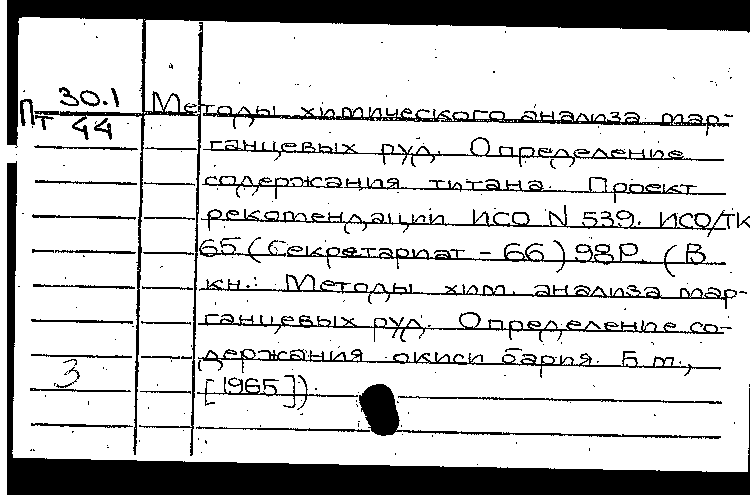 30.1
Пт 44
Методы химического анализа мар-
ганцевых руд. Определение
содержания титана. Проект
рекомендации ИСО N 539. ИСО/ТК
65 (Секретариат - 66) 98Р. (В
кн.: Методы хим. анализа мар-
ганцевых руд. Определение со-
держания окиси бария. Б.м.,
[1965])
3